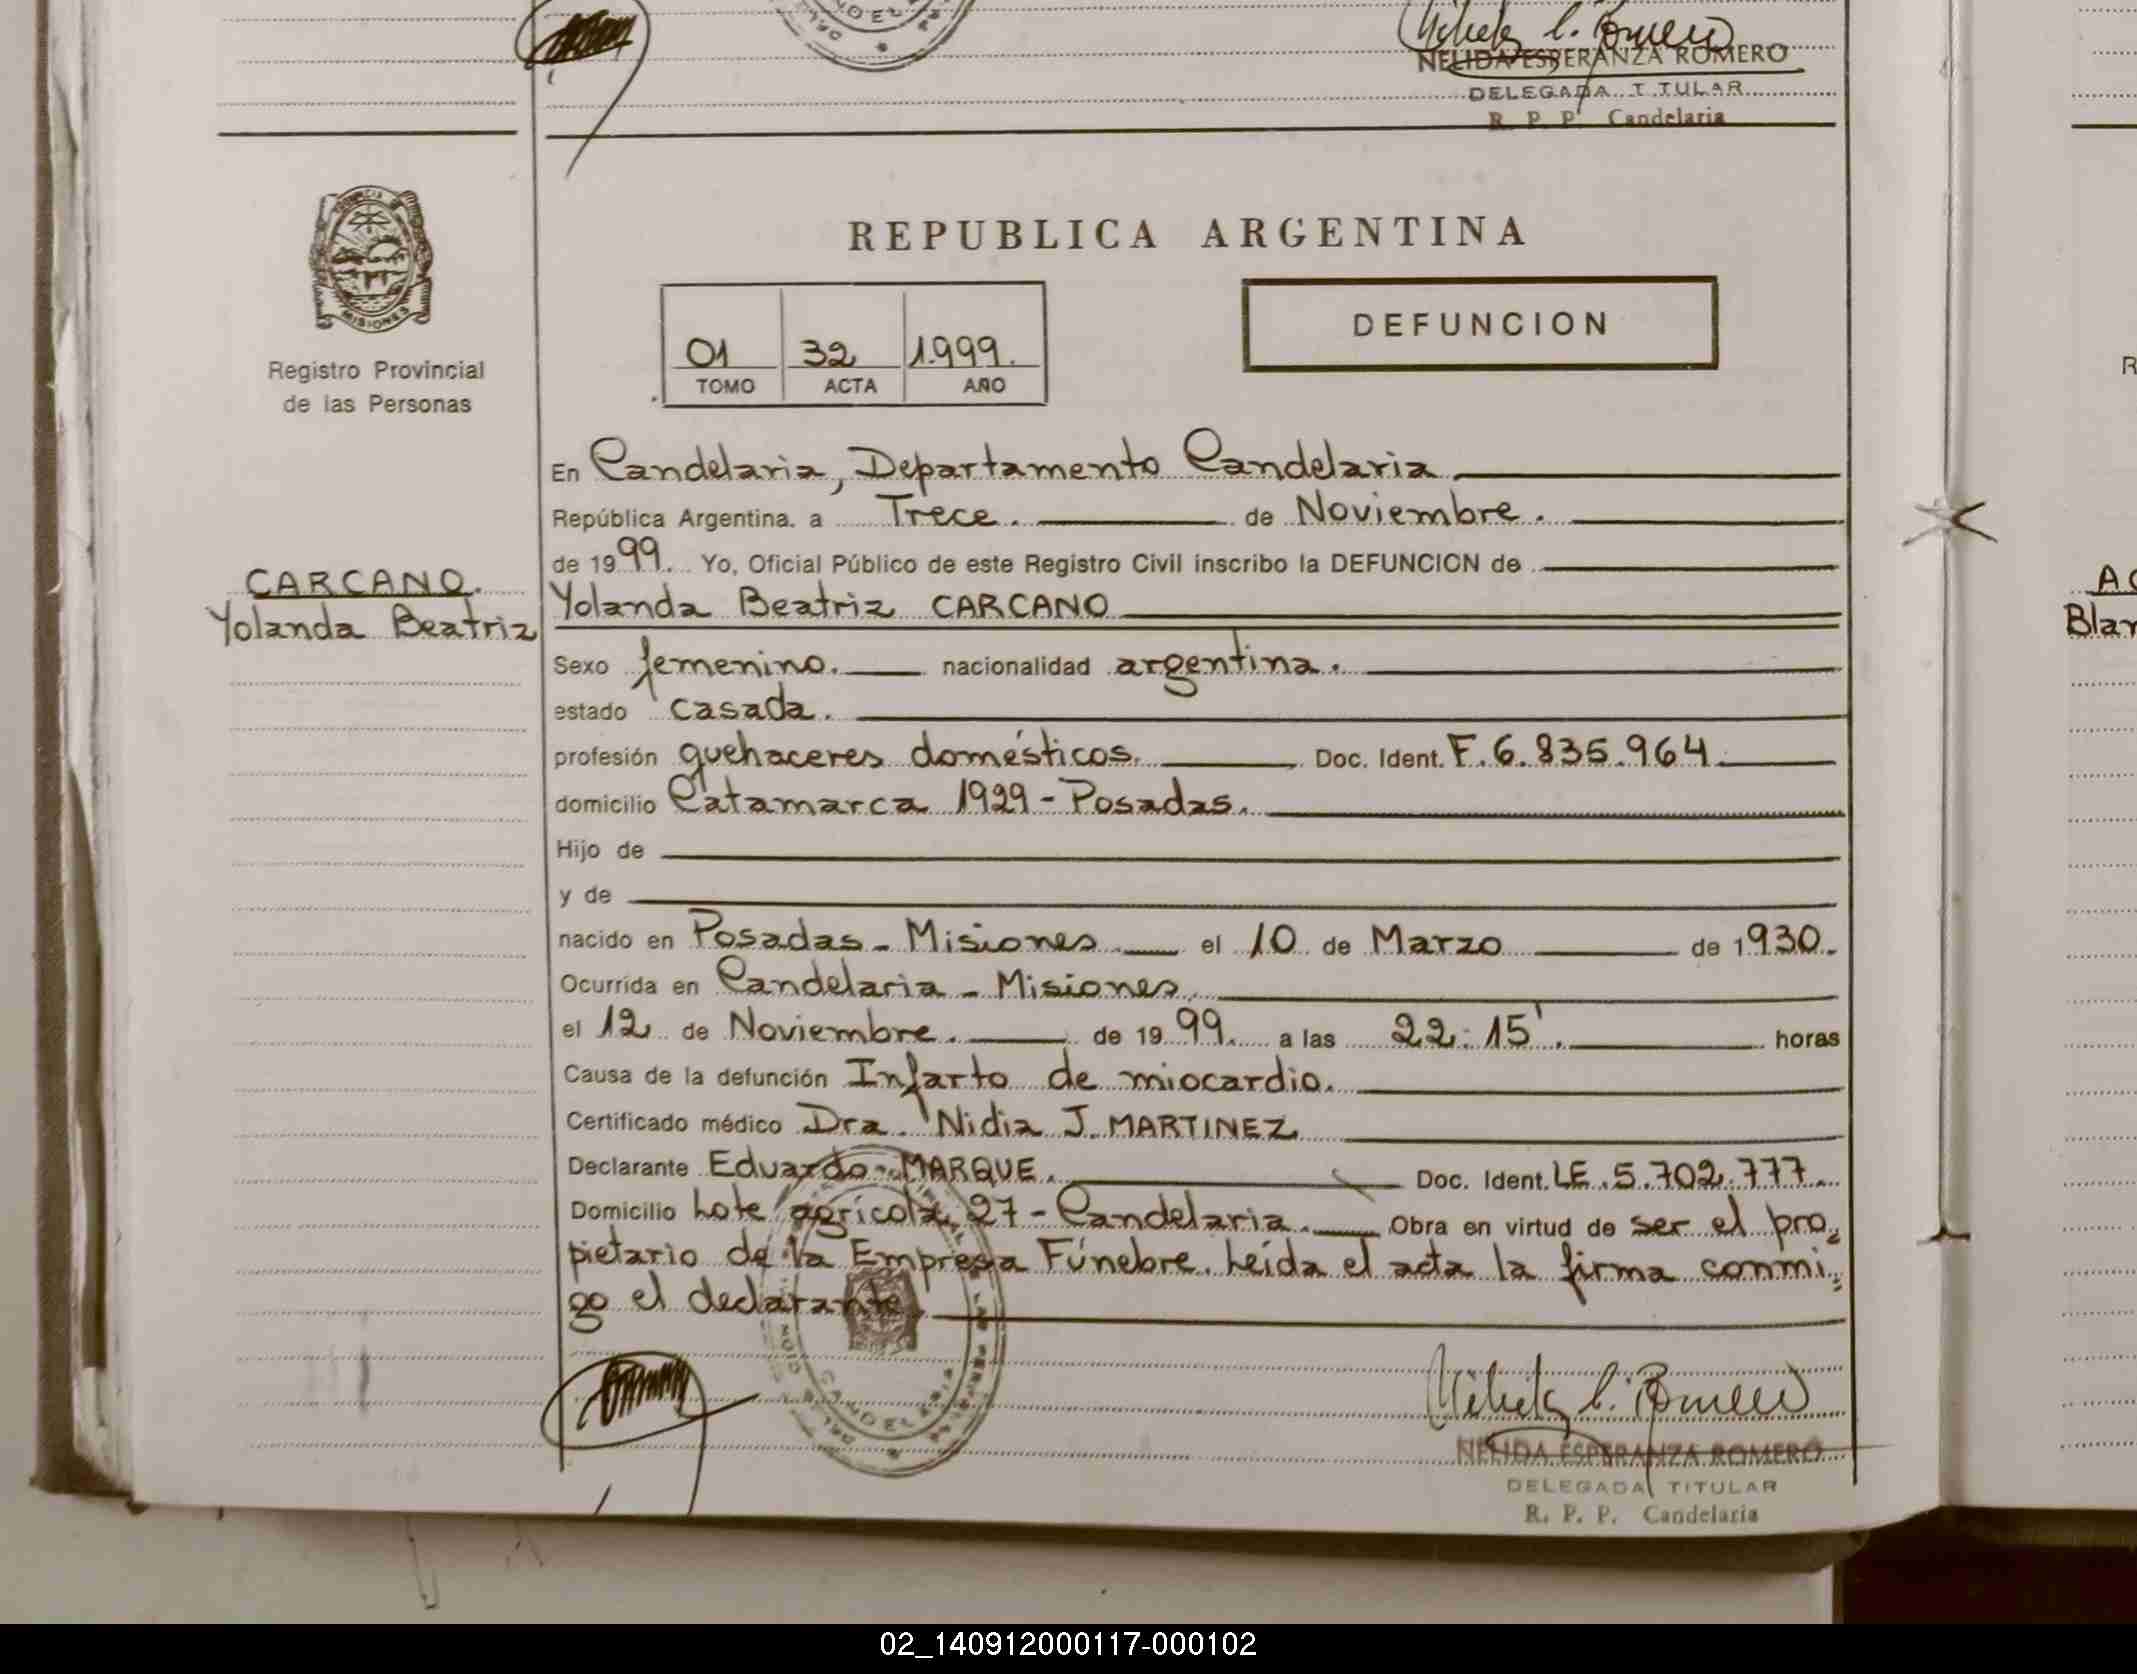 NELIDA ESPERANZA ROMERO
DELEGADA TITULAR
R. P. P. Candelaria
MISIONES
Registro Provincial
de las Personas
CARCANO.
Yolanda Beatriz
REPUBLICA ARGENTINA
01 32 1.999.
TOMO ACTA AÑO
DEFUNCION
En Candelaria, Departamento Candelaria
República Argentina. a Trece. de Noviembre.
de 1999. Yo, Oficial Público de este Registro Civil inscribo la DEFUNCION de
Yolanda Beatriz CARCANO
Sexo femenino. nacionalidad argentina.
estado casada.
profesión quehaceres domésticos. Doc. Ident. F. 6.835.964.
domicilio Catamarca 1929 - Posadas.
Hijo de
y de
nacido en Posadas - Misiones el 10 de Marzo de 1930.
Ocurrida en Candelaria - Misiones.
el 12 de Noviembre. de 1999. a las 22:15'. horas
Causa de la defunción Infarto de miocardio.
Certificado médico Dra. Nidia J. MARTINEZ
Declarante Eduardo MARQUE. Doc. Ident. LE. 5.702.777.
Domicilio Lote agrícola 27 - Candelaria. Obra en virtud de ser el pro
pietario de la Empresa Fúnebre. Leída el acta la firma conmi
go el declarante.
NELIDA ESPERANZA ROMERO
DELEGADA TITULAR
R. P. P. Candelaria
Blan
02_140912000117-000102